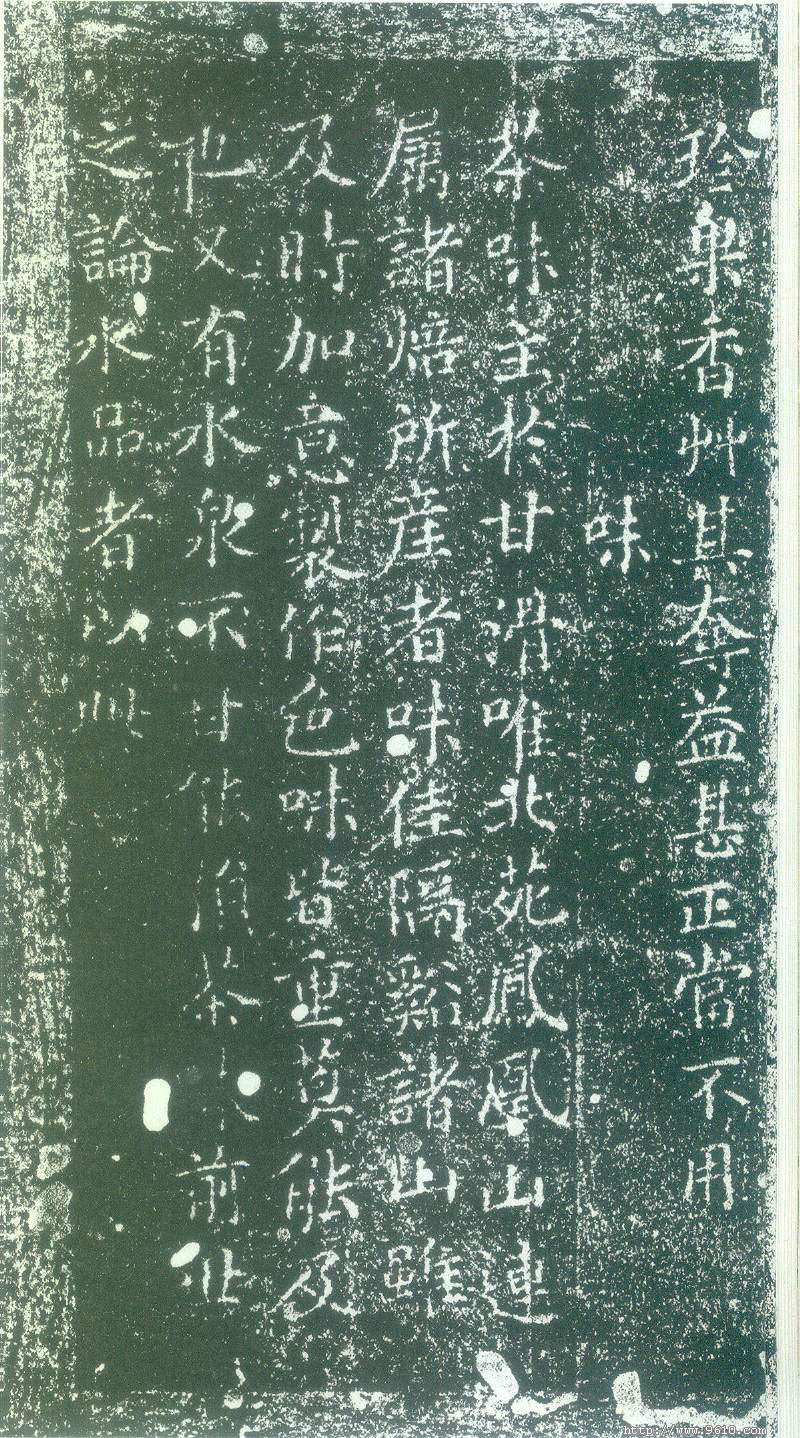 珍果香艸其奪益甚正當不用
味
茶味主於甘滑唯北苑鳳凰山連
屬諸焙所產者味佳隔谿諸山雖
及時加意製作色味皆重莫能及
也又有水泉不甘能損茶味前世
之論水品者以此
http://www.9610.com